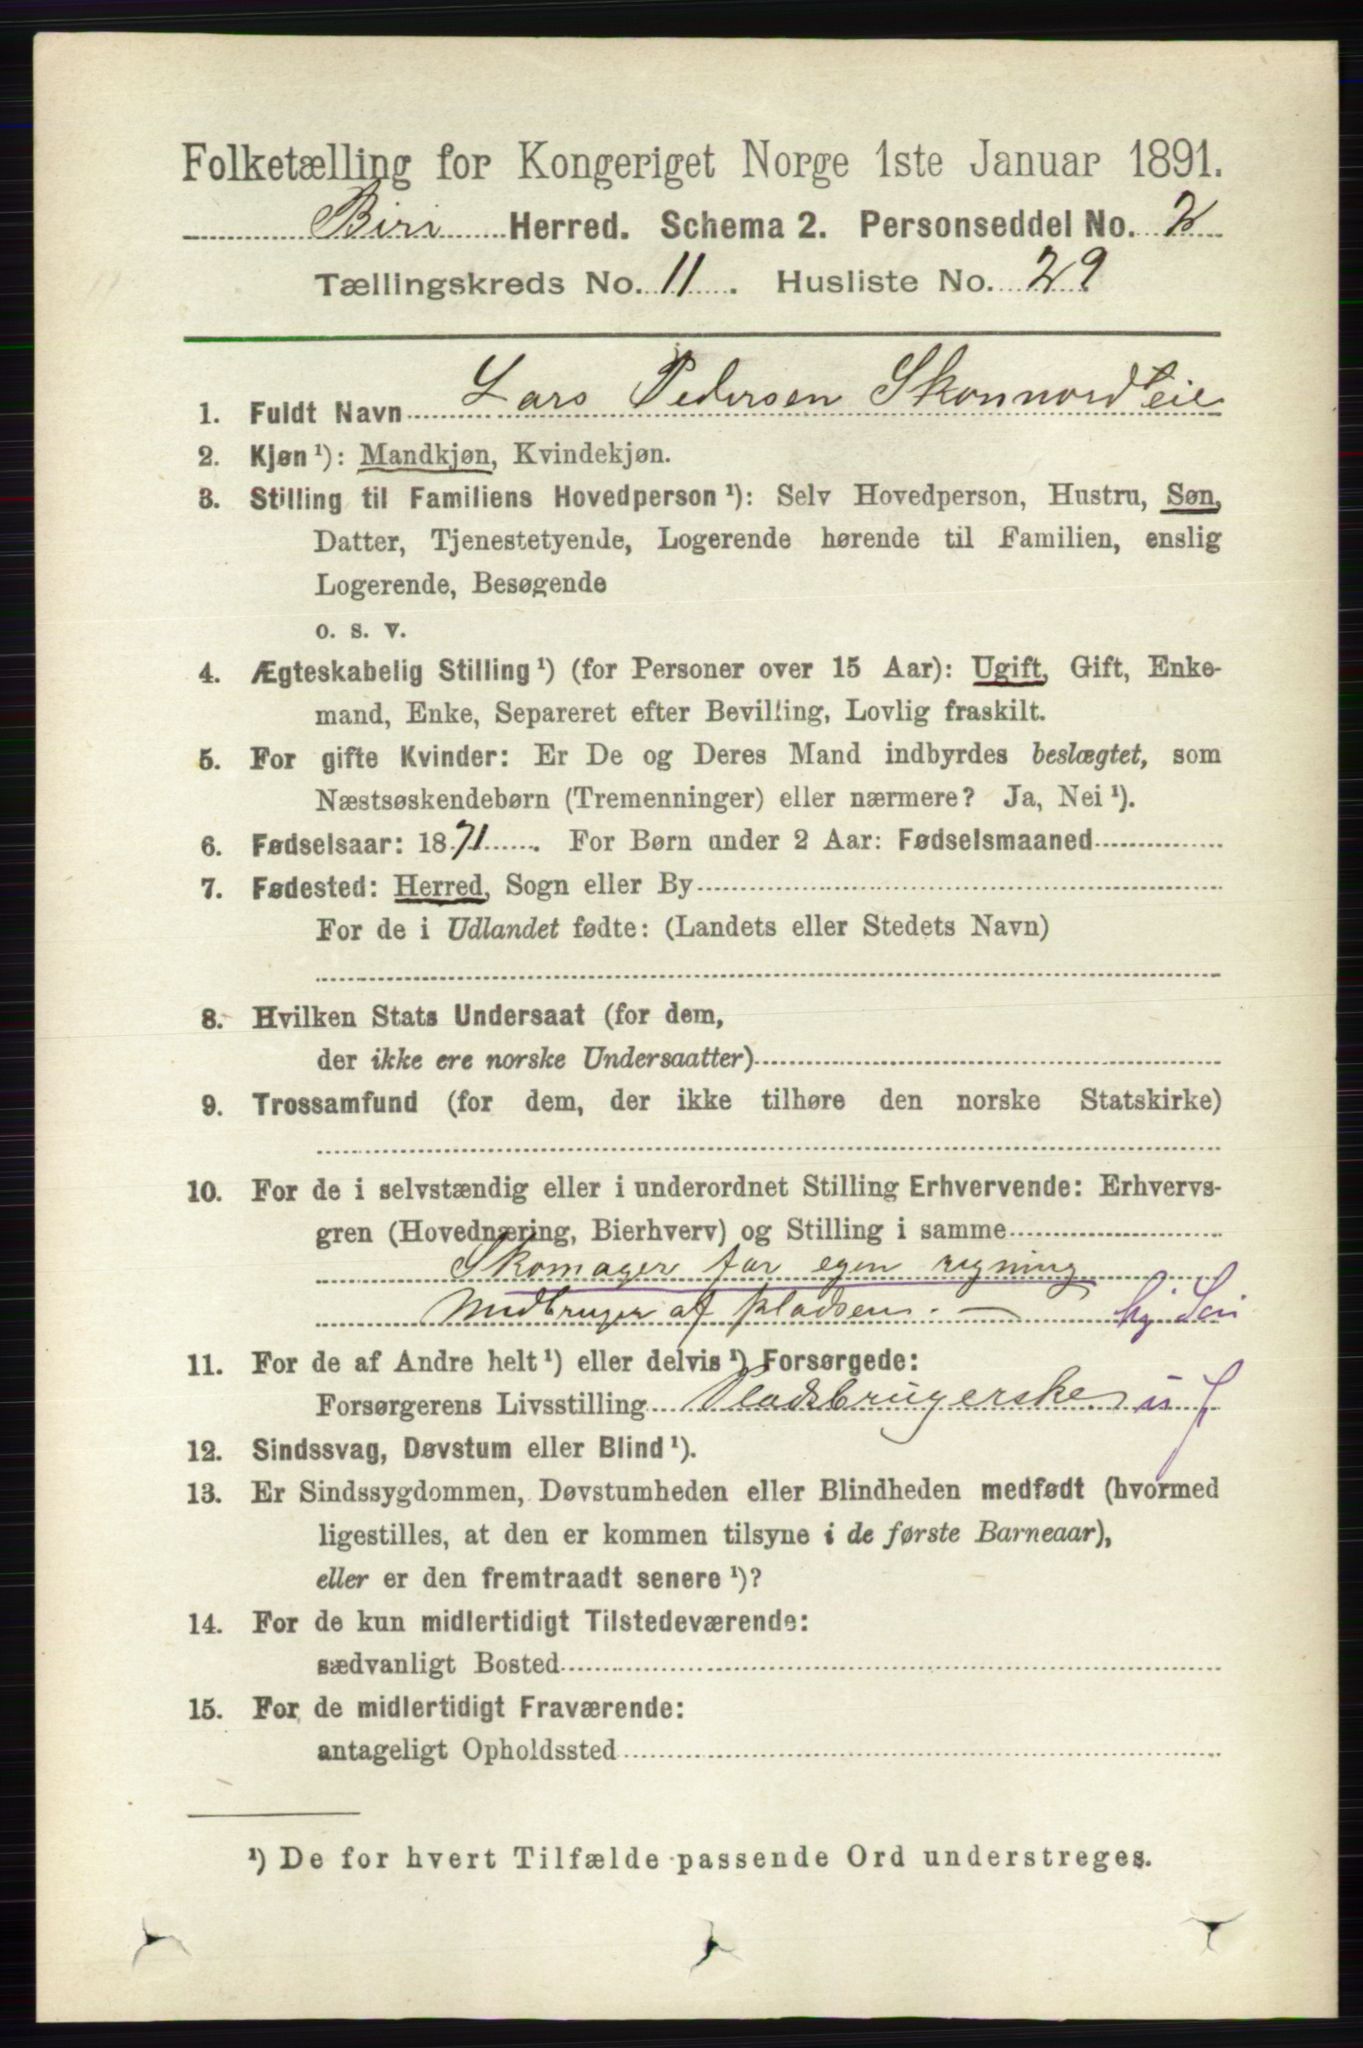 Folketælling for Kongeriget Norge 1ste Januar 1891.
Biri Herred. Schema 2. Personseddel No. 2
Tællingskreds No. 11. Husliste No. 29
1. Fuldt Navn Lars Pedersen Skonnordteie
2. Kjøn ¹): Mandkjøn, Kvindekjøn.
3. Stilling til Familiens Hovedperson ¹): Selv Hovedperson, Hustru, Søn,
Datter, Tjenestetyende, Logerende hørende til Familien, enslig
Logerende, Besøgende
o. s. v.
4. Ægteskabelig Stilling ¹) (for Personer over 15 Aar): Ugift, Gift, Enke-
mand, Enke, Separeret efter Bevilling, Lovlig fraskilt.
5. For gifte Kvinder: Er De og Deres Mand indbyrdes beslægtet, som
Næstsøskendebørn (Tremenninger) eller nærmere? Ja, Nei ¹).
6. Fødselsaar: 1871. For Børn under 2 Aar: Fødselsmaaned
7. Fødested: Herred, Sogn eller By
For de i Udlandet fødte: (Landets eller Stedets Navn)
8. Hvilken Stats Undersaat (for dem,
der ikke ere norske Undersaatter)
9. Trossamfund (for dem, der ikke tilhøre den norske Statskirke)
10. For de i selvstændig eller i underordnet Stilling Erhvervende: Erhvervs-
gren (Hovednæring, Bierhverv) og Stilling i samme
Skomager for egen regning
Medbruger af pladsen. —
11. For de af Andre helt ¹) eller delvis ¹) Forsørgede:
Forsørgerens Livsstilling Pladsbrugerske
12. Sindssvag, Døvstum eller Blind ¹).
13. Er Sindssygdommen, Døvstumheden eller Blindheden medfødt (hvormed
ligestilles, at den er kommen tilsyne i de første Barneaar),
eller er den fremtraadt senere ¹)?
14. For de kun midlertidigt Tilstedeværende:
sædvanligt Bosted
15. For de midlertidigt Fraværende:
antageligt Opholdssted
¹) De for hvert Tilfælde passende Ord understreges.